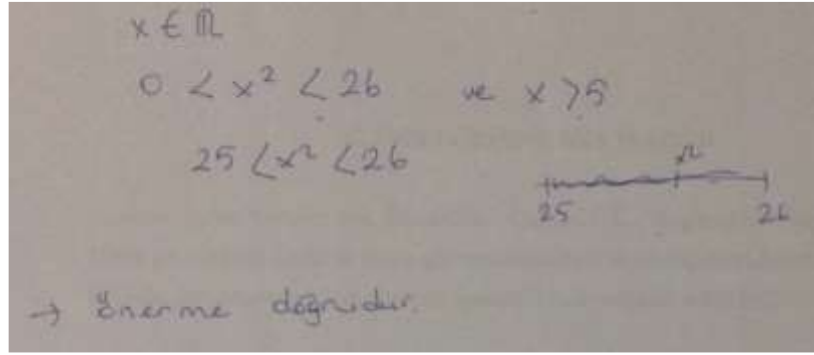 x ∈ ℝ
0 < x² < 26 ve x > 5
25 < x² < 26
x²
25 26
→ Önerme doğrudur.